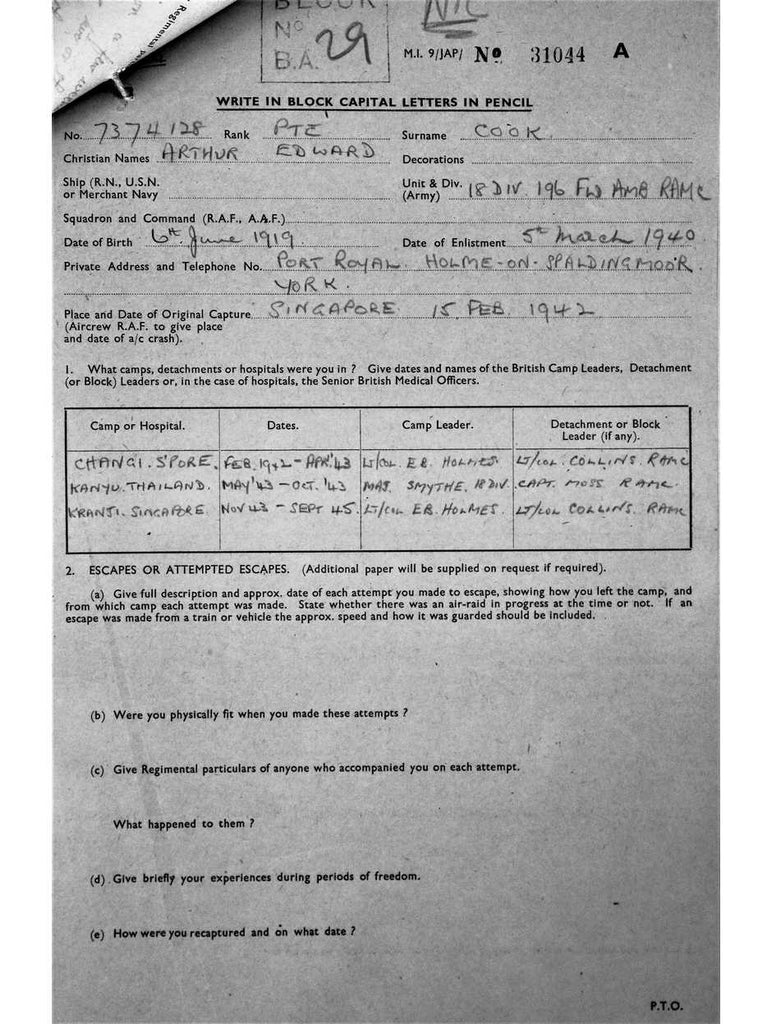 Regimental
BLOCK
Nº 29
B.A.
NIL
M.I. 9/JAP/ Nº 31044 A
WRITE IN BLOCK CAPITAL LETTERS IN PENCIL
No. 7374128 Rank PTE Surname COOK
Christian Names ARTHUR EDWARD Decorations
Ship (R.N., U.S.N. or Merchant Navy
Unit & Div. (Army) 18 DIV. 196 FLD AMB RAMC
Squadron and Command (R.A.F., A.A.F.)
Date of Birth 6th June 1919 Date of Enlistment 5th March 1940
Private Address and Telephone No. PORT ROYAL. HOLME-ON-SPALDINGMOOR.
YORK.
Place and Date of Original Capture SINGAPORE. 15 FEB. 1942
(Aircrew R.A.F. to give place
and date of a/c crash).
1. What camps, detachments or hospitals were you in ? Give dates and names of the British Camp Leaders, Detachment
(or Block) Leaders or, in the case of hospitals, the Senior British Medical Officers.
Camp or Hospital. Dates. Camp Leader. Detachment or Block Leader (if any).
CHANGI. S'PORE. FEB. 1942 - APR. '43 LT/COL. E.B. HOLMES. LT/COL. COLLINS. RAMC
KANYU. THAILAND. MAY '43 - OCT. '43 MAJ. SMYTHE. 18 DIV. CAPT. MOSS RAMC.
KRANJI. SINGAPORE. NOV 43 - SEPT 45. LT/COL EB. HOLMES. LT/COL COLLINS. RAMC
2. ESCAPES OR ATTEMPTED ESCAPES. (Additional paper will be supplied on request if required).
(a) Give full description and approx. date of each attempt you made to escape, showing how you left the camp, and
from which camp each attempt was made. State whether there was an air-raid in progress at the time or not. If an
escape was made from a train or vehicle the approx. speed and how it was guarded should be included.
(b) Were you physically fit when you made these attempts ?
(c) Give Regimental particulars of anyone who accompanied you on each attempt.
What happened to them ?
(d) Give briefly your experiences during periods of freedom.
(e) How were you recaptured and on what date ?
P.T.O.